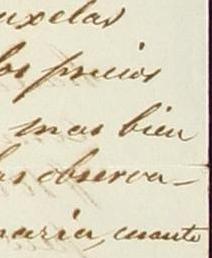 uxelas
los precios
mas bien
las observa-
maria, cuanto